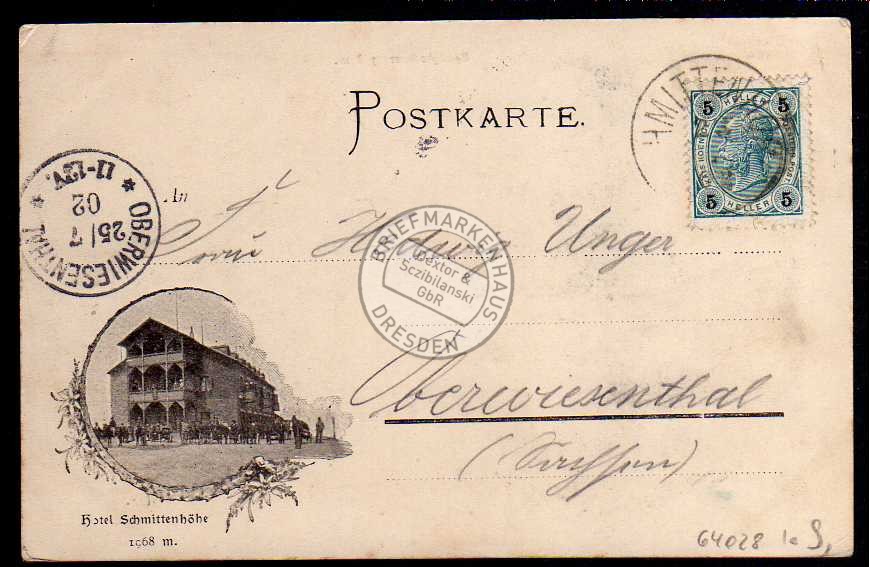 POSTKARTE.
HMITTEN
5 HELLER 5
5 HELLER 5
OBERWIESENTHAL
25/7
02
* 11-12V. *
An
Frau Hedwig Unger
BRIEFMARKENHAUS
Sczibilanski
GbR
DRESDEN
Oberwiesenthal
(Sachsen)
Hotel Schmittenhöhe
1968 m.
64028